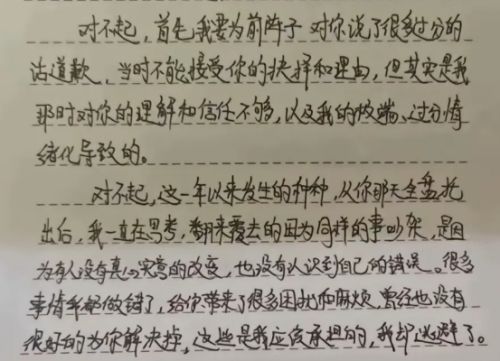 对不起，首先我要为前阵子对你说了很多过分的
话道歉，当时不能接受你的抉择和理由，但其实是我
那时对你的理解和信任不够，以及我的极端、过分情
绪化导致的。
对不起，这一年以来发生的种种，从你那天全盘托
出后，我一直在思考，翻来覆去的因为同样的事吵架，是因
为有人没有真心实意的改变，也没有认识到自己的错误。很多
事情我都做错了，给你带来了很多困扰和麻烦，曾经也没有
很好的为你解决掉，这些是我应该承担的，我却逃避了。